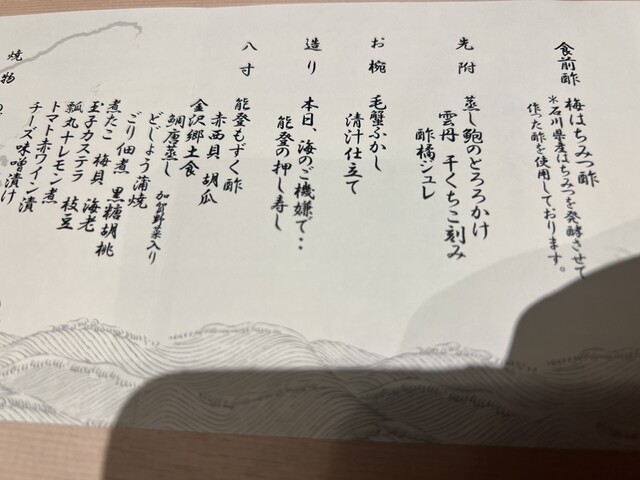 食前酢
梅はちみつ酢
＊石川県産はちみつを発酵させて
作った酢を使用しております。
先附
蒸し鮑のとろろかけ
雲丹 干くちこ刻み
酢橘ジュレ
お椀
毛蟹ふかし
清汁仕立て
造り
本日、海のご機嫌で・・
能登の押し寿し
八寸
能登もずく酢
赤西貝 胡瓜
金沢郷土食
鯛唐蒸し 加賀野菜入り
どじょう蒲焼
ごり佃煮 黒糖胡桃
煮たこ 梅貝 海老
玉子カステラ 枝豆
瓢丸十レモン煮
トマト赤ワイン漬
チーズ味噌漬け
焼物